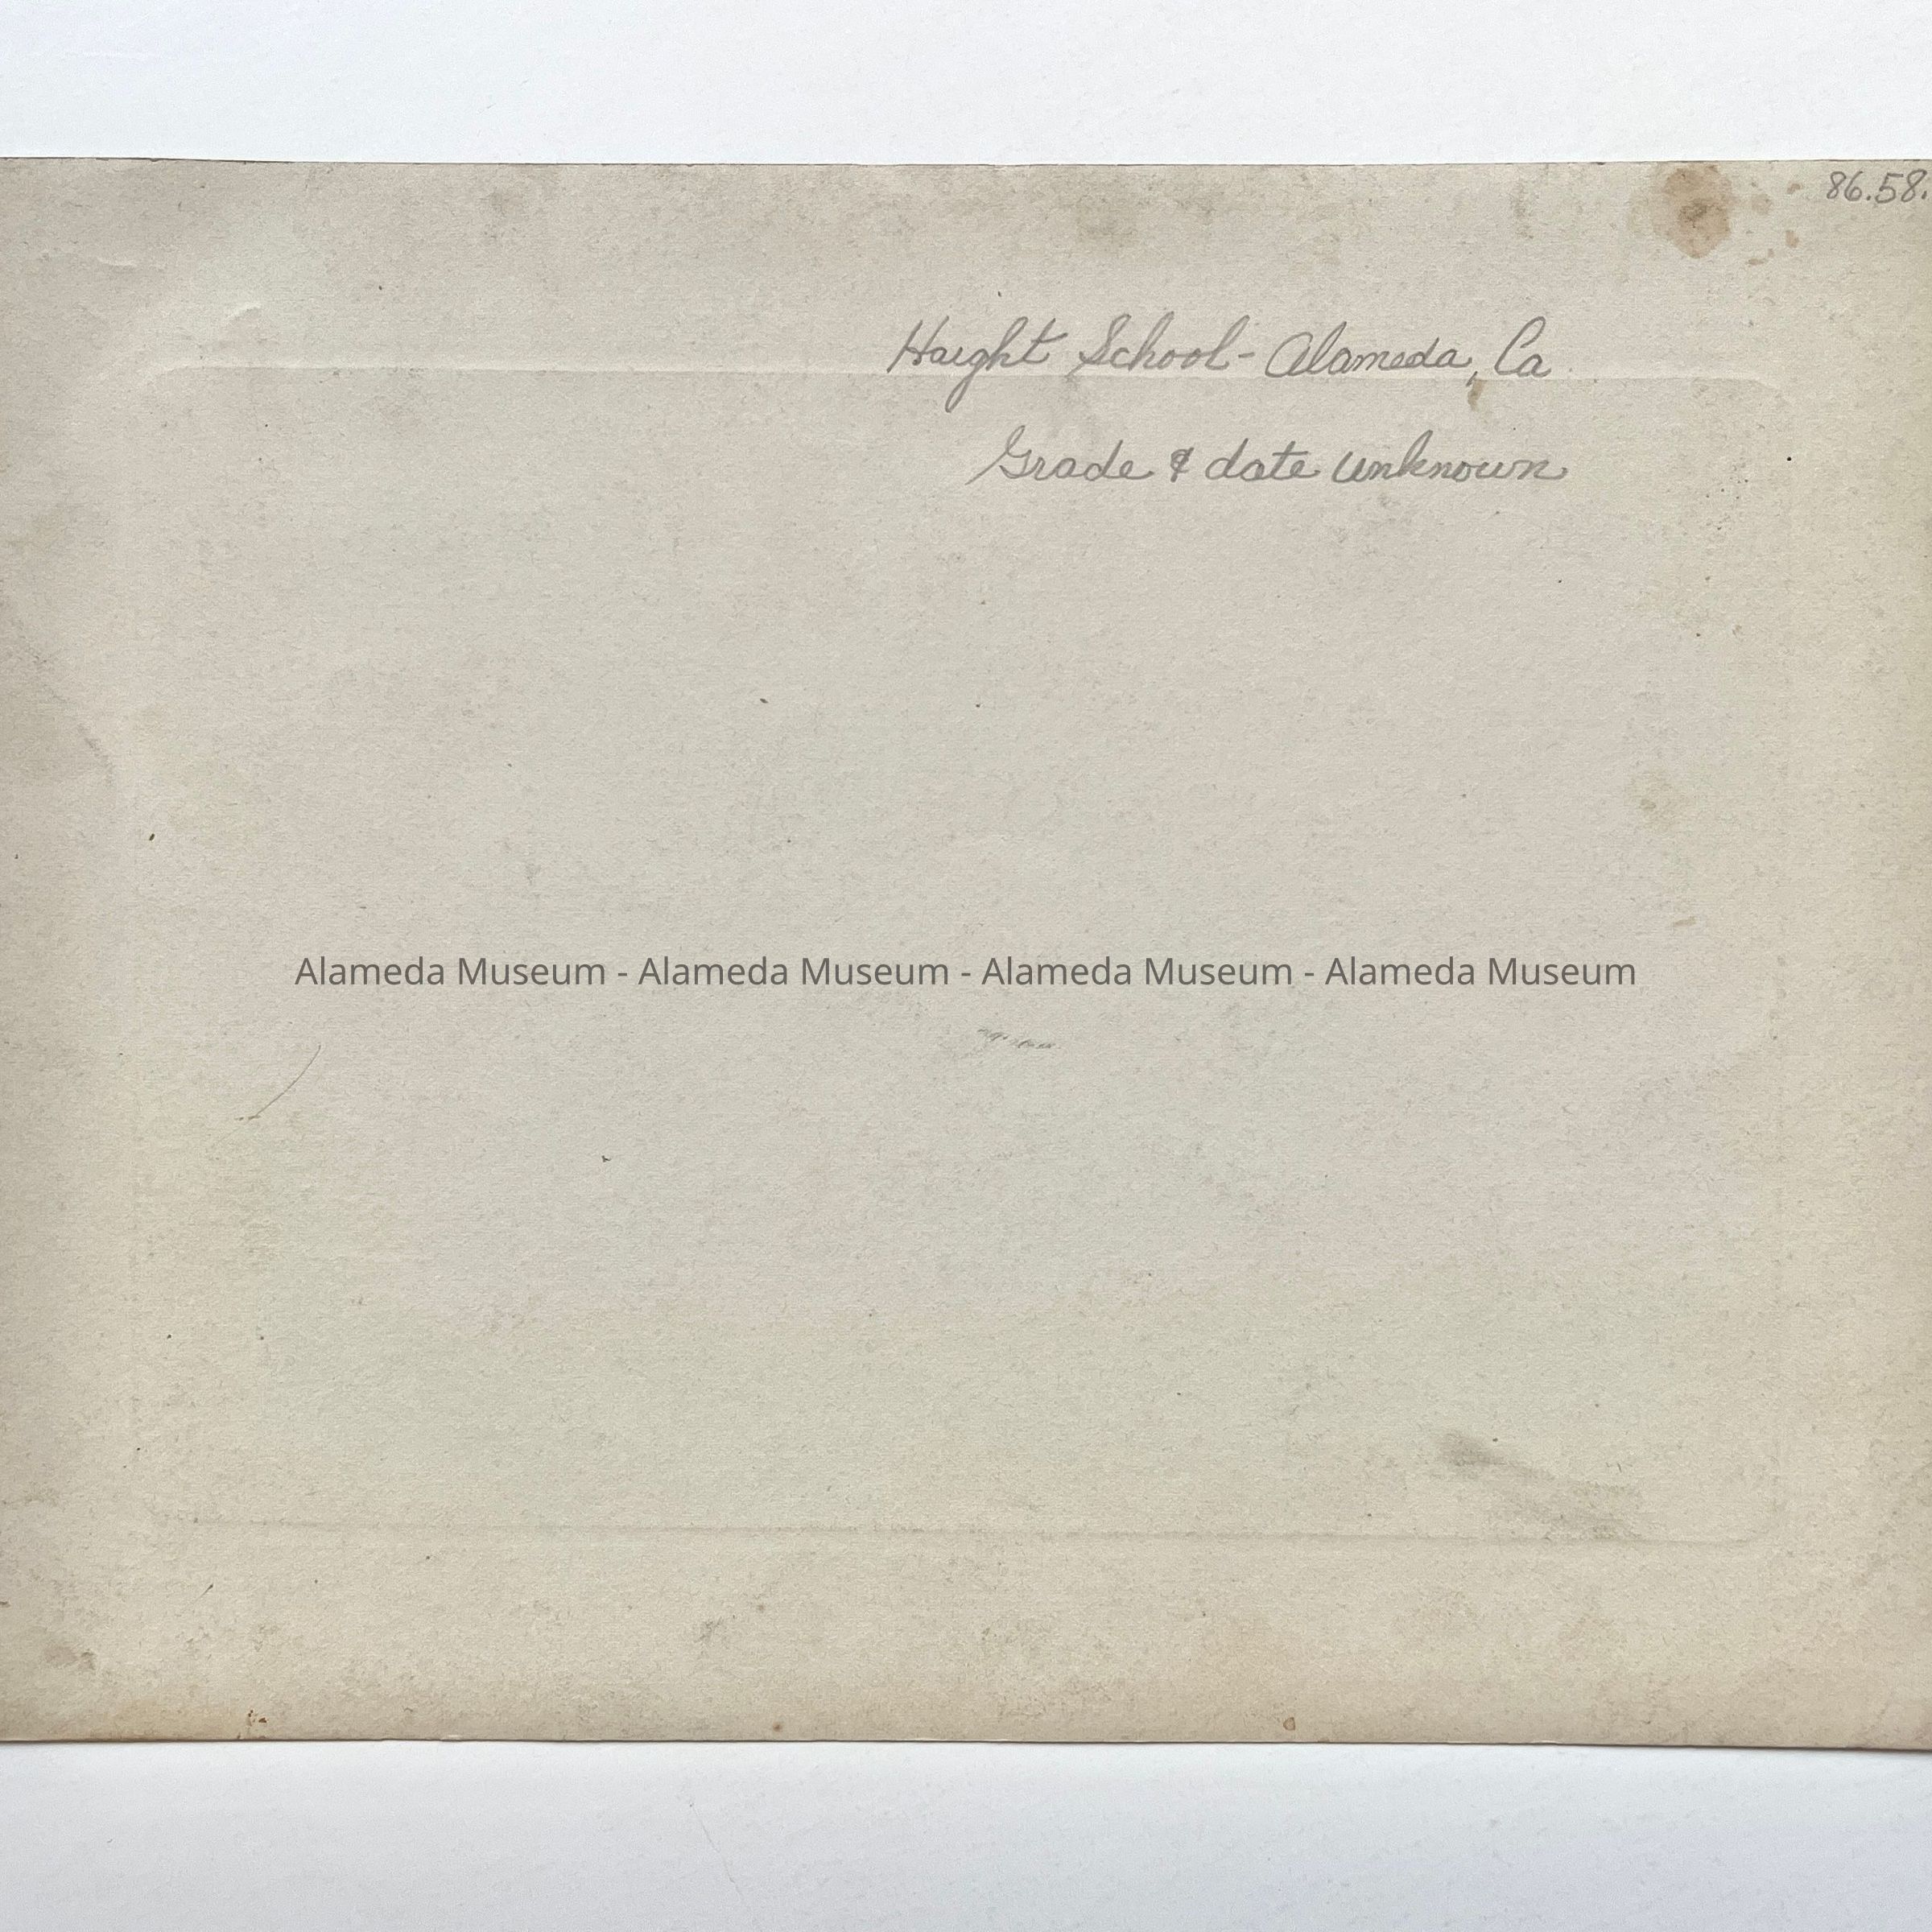 86.58.
Haight School - Alameda, Ca
Grade & date unknown
Alameda Museum - Alameda Museum - Alameda Museum - Alameda Museum